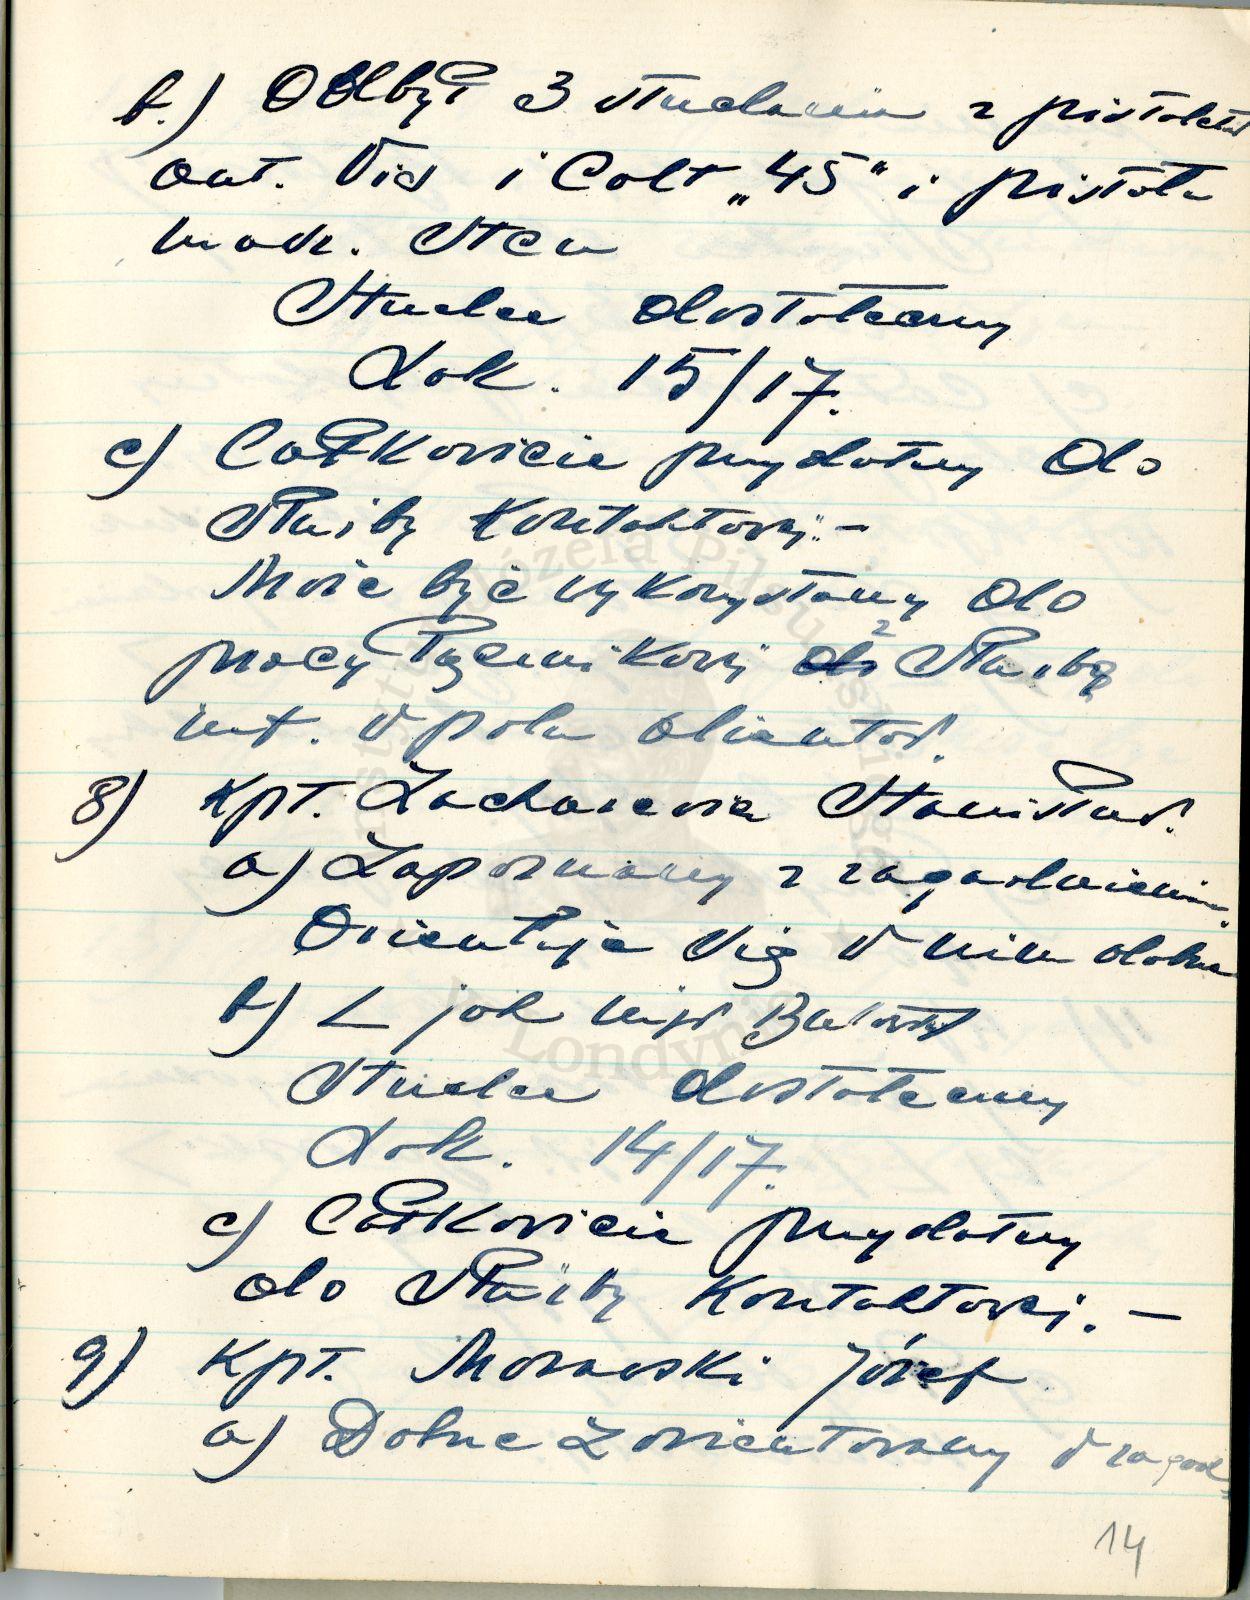 b.) Odbył 3 strzelania z pistoletu
aut. Vis i Colt „45" i pistole
masz. Sten
Strzelec dostateczny
Lok. 15/17.
c) Całkowicie przydatny do
Służby Kontaktowej. –
Może być wykorzystany do
pracy łącznikowej do z Służbą
int. w polu
8) Kpt. Zacharewicz Stanisław.
a) Zapoznany z zagadnieniem.
Orientuje się w nim dobrze
b) L jak mjr
Strzelec dostateczny
Lok. 14/17.
c) Całkowicie przydatny
do Służby Kontaktowej. –
9) Kpt. Morawski Józef
a) Dobrze zorientowany w zagad-
14
Instytut Józefa Piłsudskiego
Londyn